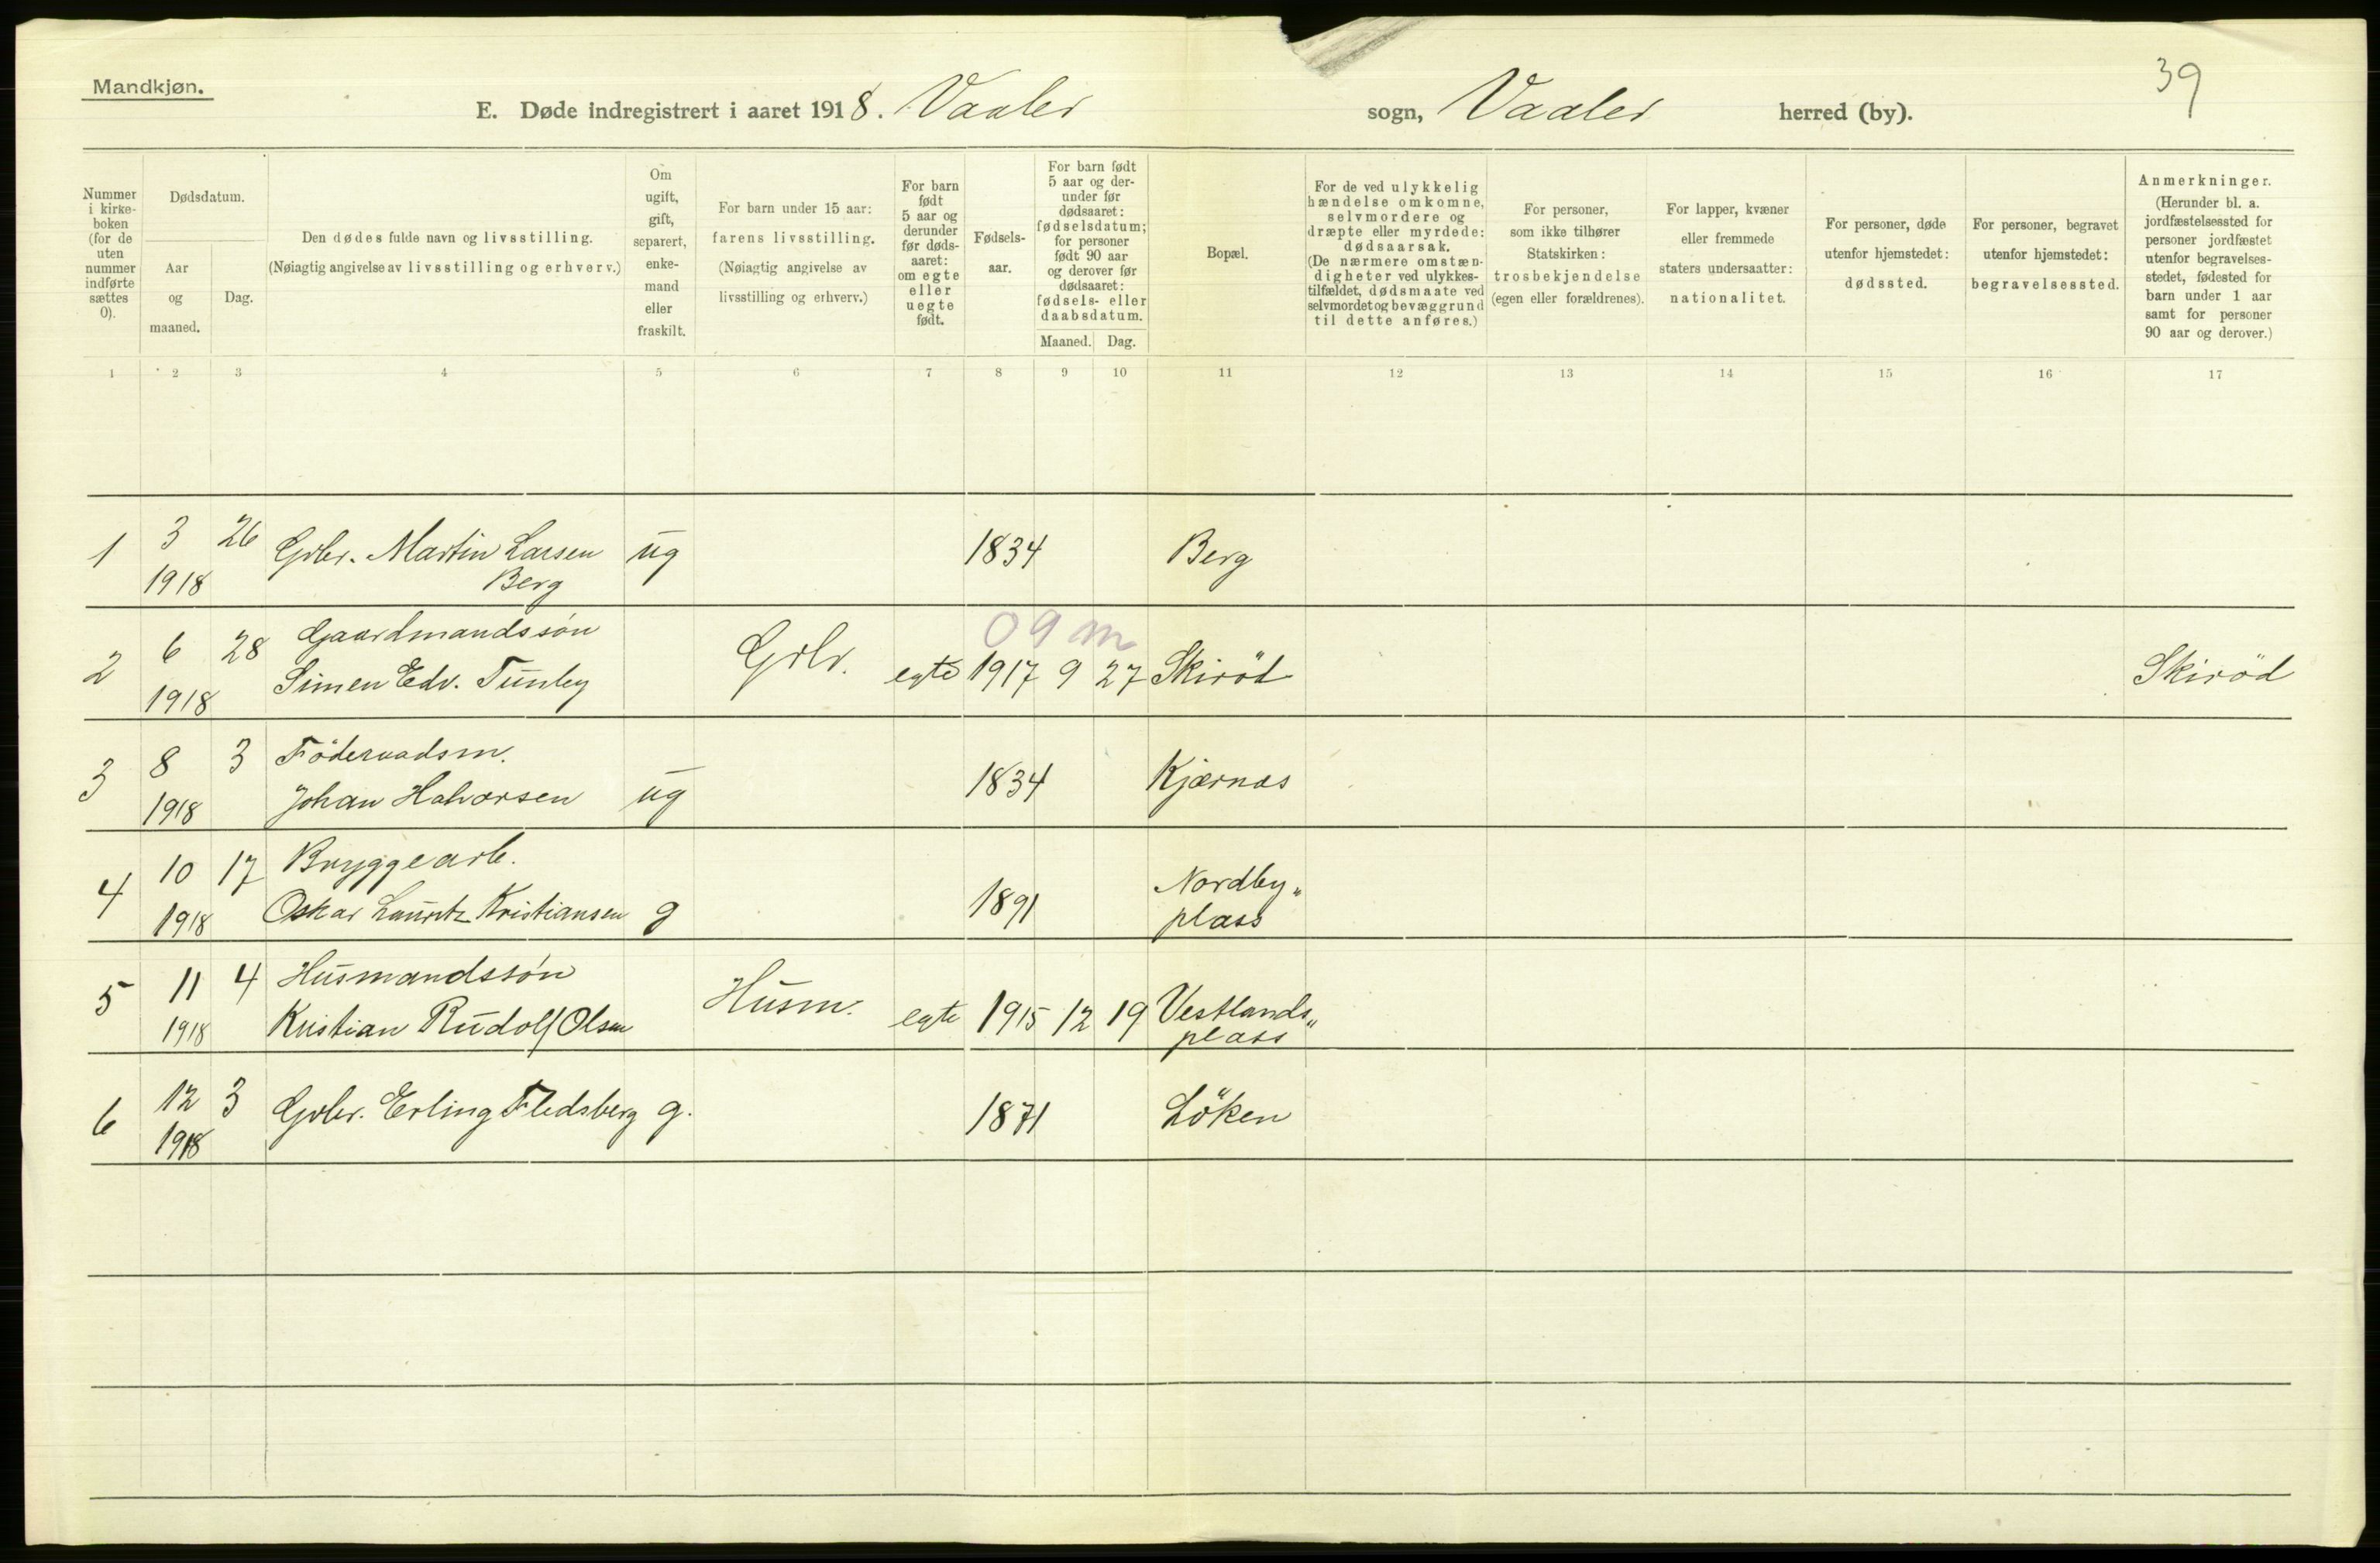 39
Mandkjøn.
E. Døde indregistrert i aaret 1918. Vaaler sogn, Vaaler herred (by).
Nummer
i kirke-
boken
(for de
uten
nummer
indførte
sættes
0).
Dødsdatum.
Aar
og
maaned.
Dag.
Den dødes fulde navn og livsstilling.
(Nøiagtig angivelse av livsstilling og erhverv.)
Om
ugift,
gift,
separert,
enke-
mand
eller
fraskilt.
For barn under 15 aar:
farens livsstilling.
(Nøiagtig angivelse av
livsstilling og erhverv.)
For barn
født
5 aar og
derunder
før døds-
aaret:
om egte
eller
uegte
født.
Fødsels-
aar.
For barn født
5 aar og der-
under før
dødsaaret:
fødselsdatum;
for personer
født 90 aar
og derover før
dødsaaret:
fødsels- eller
daabsdatum.
Maaned. Dag.
Bopæl.
For de ved ulykkelig
hændelse omkomne,
selvmordere og
dræpte eller myrdede:
dødsaarsak.
(De nærmere omstæn-
digheter ved ulykkes-
tilfældet, dødsmaate ved
selvmordet og bevæggrund
til dette anføres.)
For personer,
som ikke tilhører
Statskirken:
trosbekjendelse
(egen eller forældrenes).
For lapper, kvæner
eller fremmede
staters undersaatter:
nationalitet.
For personer, døde
utenfor hjemstedet:
dødssted.
For personer, begravet
utenfor hjemstedet:
begravelsessted.
Anmerkninger.
(Herunder bl. a.
jordfæstelsessted for
personer jordfæstet
utenfor begravelses-
stedet, fødested for
barn under 1 aar
samt for personer
90 aar og derover.)
1 2 3 4 5 6 7 8 9 10 11 12 13 14 15 16 17
1 3 26 Grbr. Martin Larsen ug 1834 Berg
1918 Berg
09m
2 6 28 Gaardmandssön Grbr.
1918 Simen Edv. Tunby egte 1917 9 27 Skiröd Skiröd
3 8 3 Föderaadsm.
1918 Johan Halvorsen ug 1834 Kjærnes
4 10 17 Bryggearb. Nordby„
1918 Oskar Lauritz Kristiansen g 1891 plass
5 11 4 Husmandssön Husm.
1918 Kristian Rudolf Olsen egte 1915 12 19 Vestlands„
plass
6 12 3 Grbr. Erling Fledsberg g. 1871 Löken
1918